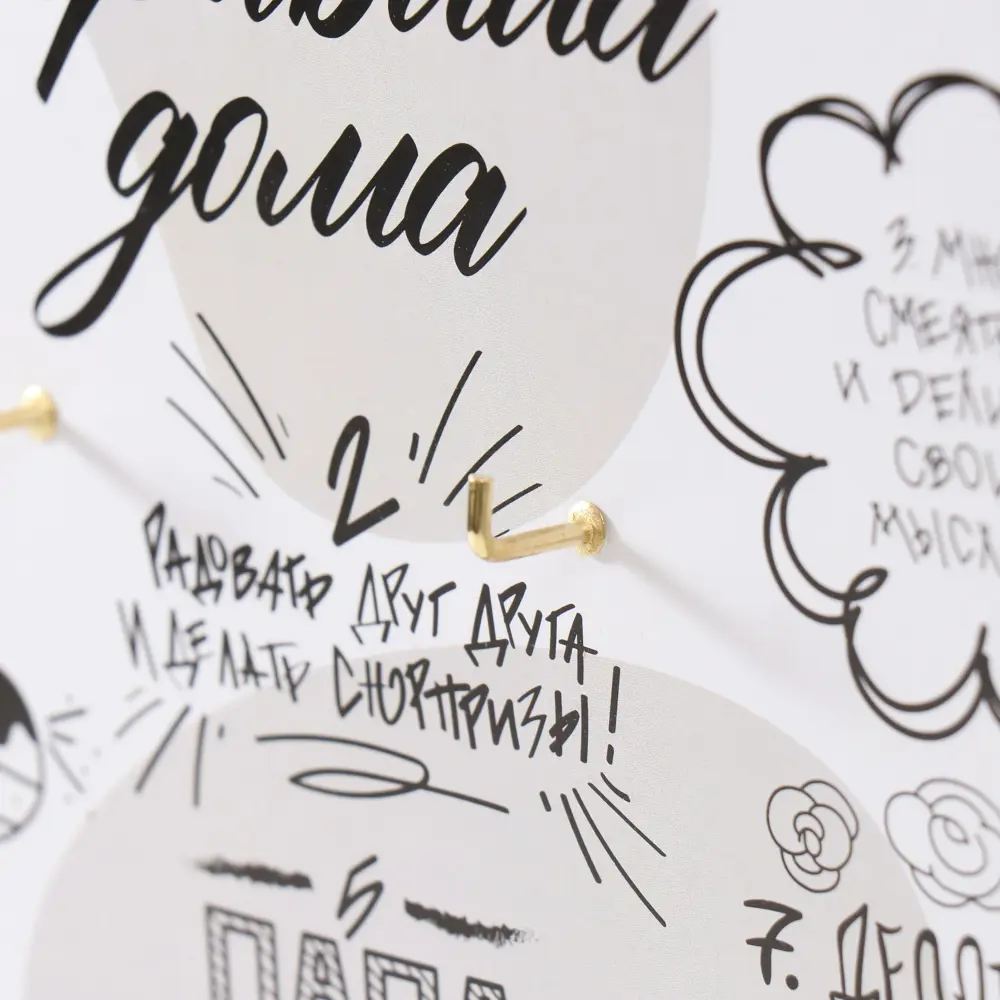 дома
2
РАДОВАТЬ ДРУГ ДРУГА
И ДЕЛАТЬ СЮРПРИЗЫ!
3. МН
СМЕЯТ
И ДЕЛ
СВО
МЫСЛ
5
ПАПА
7.